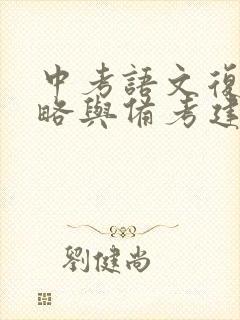 中考語文復
略與備考建
劉健尚